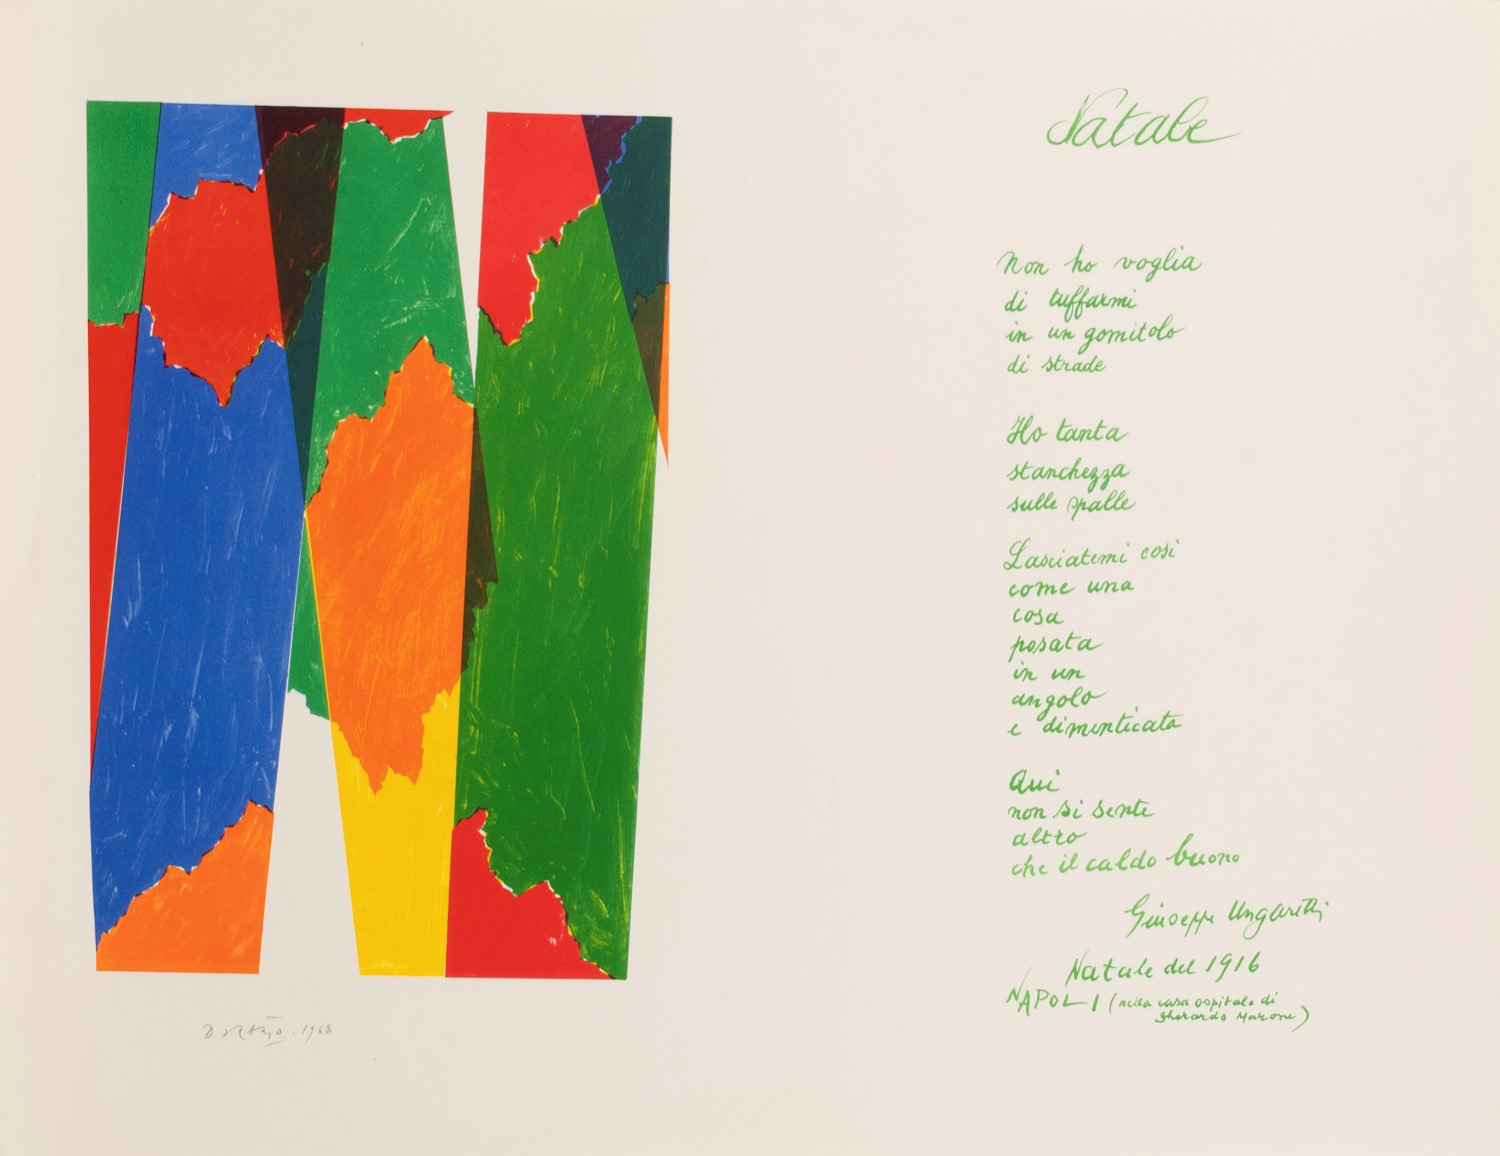 Natale
Non ho voglia
di tuffarmi
in un gomitolo
di strade
Ho tanta
stanchezza
sulle spalle
Lasciatemi così
come una
cosa
posata
in un
angolo
e dimenticata
Qui
non si sente
altro
che il caldo buono
Giuseppe Ungaretti
Natale del 1916
NAPOLI (nella casa ospitale di
Gherardo Marone)
D'Orazio. 1968